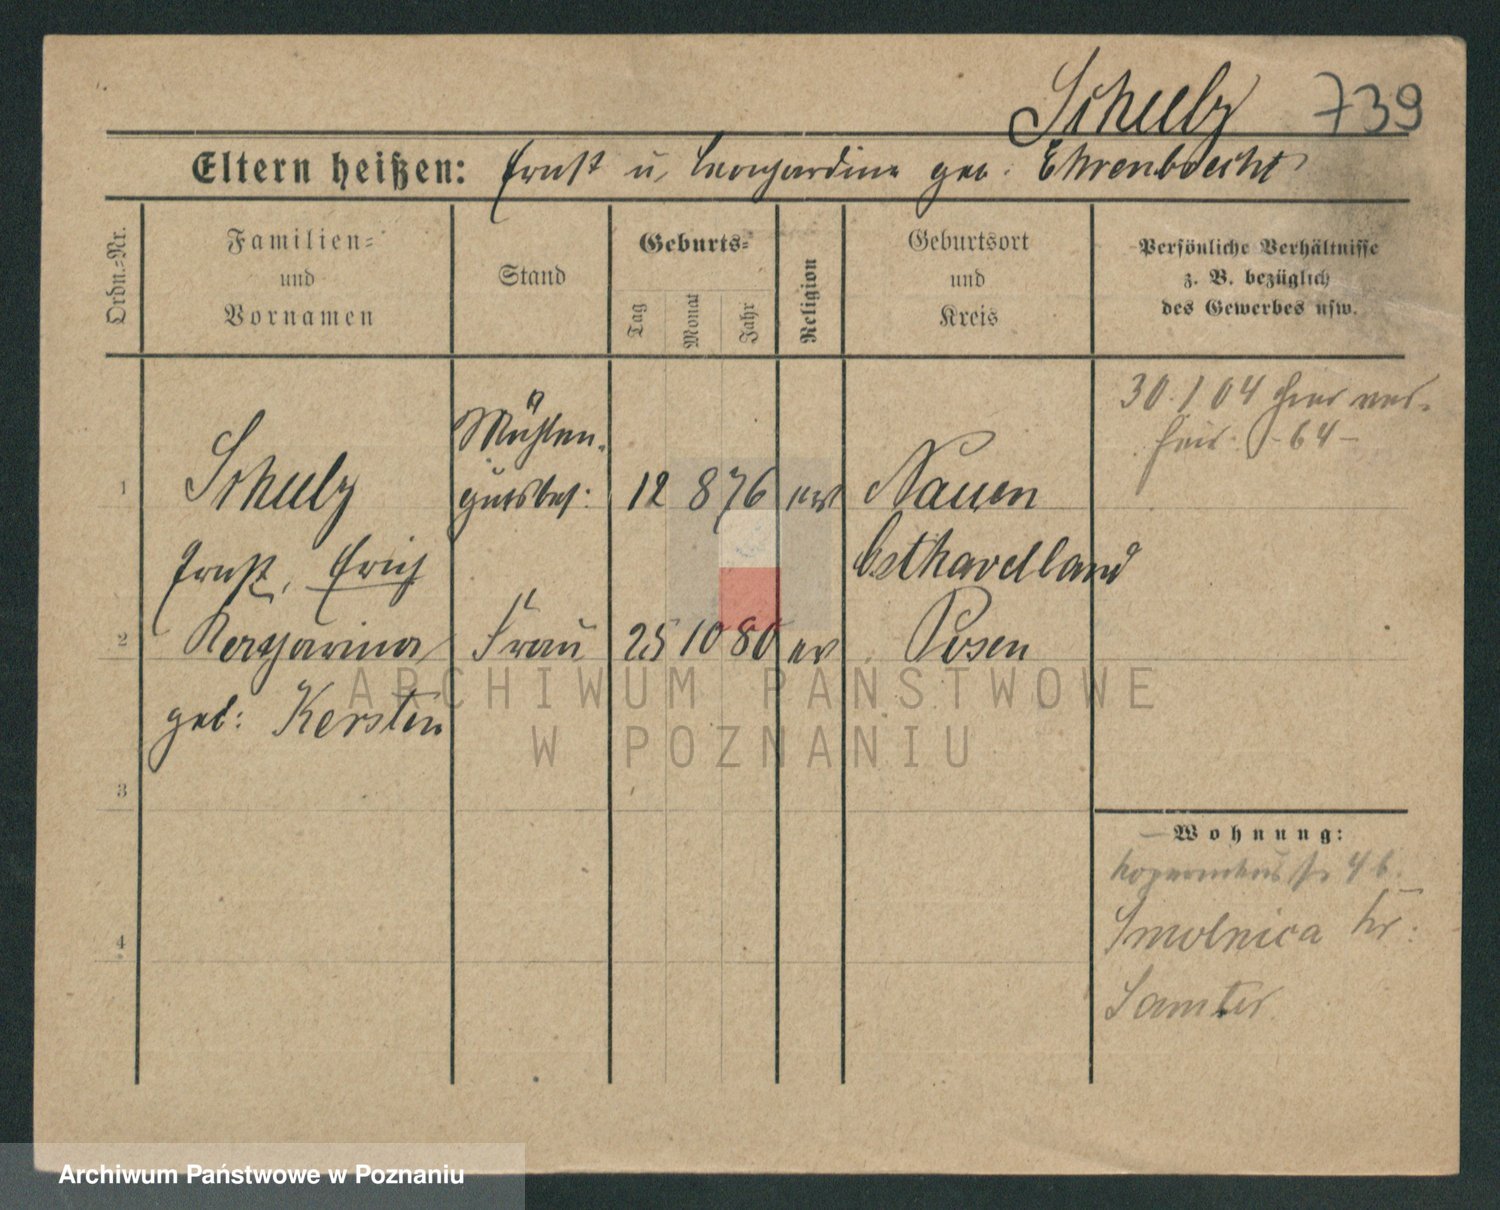 Schulz 739
Eltern heißen: Ernst u. Leonhardine geb. Ehrenbrecht
Ordn.-Nr.
Familien-
und
Vornamen
Stand
Geburts-
Tag
Monat
Jahr
Religion
Geburtsort
und
Kreis
Persönliche Verhältnisse
z. B. bezüglich
des Gewerbes usw.
30.1 04 hier ver-
heir. -64-
Mühlen-
1 Schulz gutsbes: 12 8 76 ev Nauen
Ernst, Erich Osthavelland
2 Katharina Frau 25 10 80 ev Posen
geb: Kersten
3
4
Wohnung:
Kopernikusstr 4 b.
Smolnica Kr.
Samter
ARCHIWUM PAŃSTWOWE
W POZNANIU
Archiwum Państwowe w Poznaniu